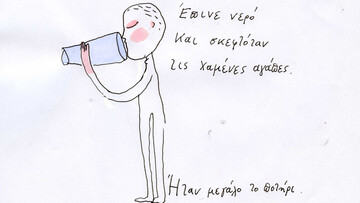 Έπινε νερό
Και σκεφτόταν
τις χαμένες αγάπες.
Ήταν μεγάλο το ποτήρι.